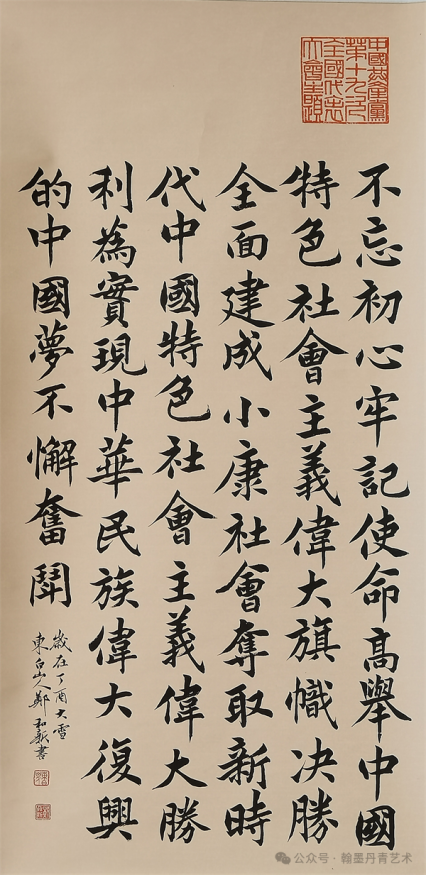 不忘初心牢記使命高舉中國
特色社會主義偉大旗幟决勝
全面建成小康社會奪取新時
代中國特色社會主義偉大勝
利為實現中華民族偉大復興
的中國夢不懈奮鬪
歲在丁酉大雪
東白山人鄭和新書
中國共産黨
第十九次
全國代表
大會主題
公众号·翰墨丹青艺术